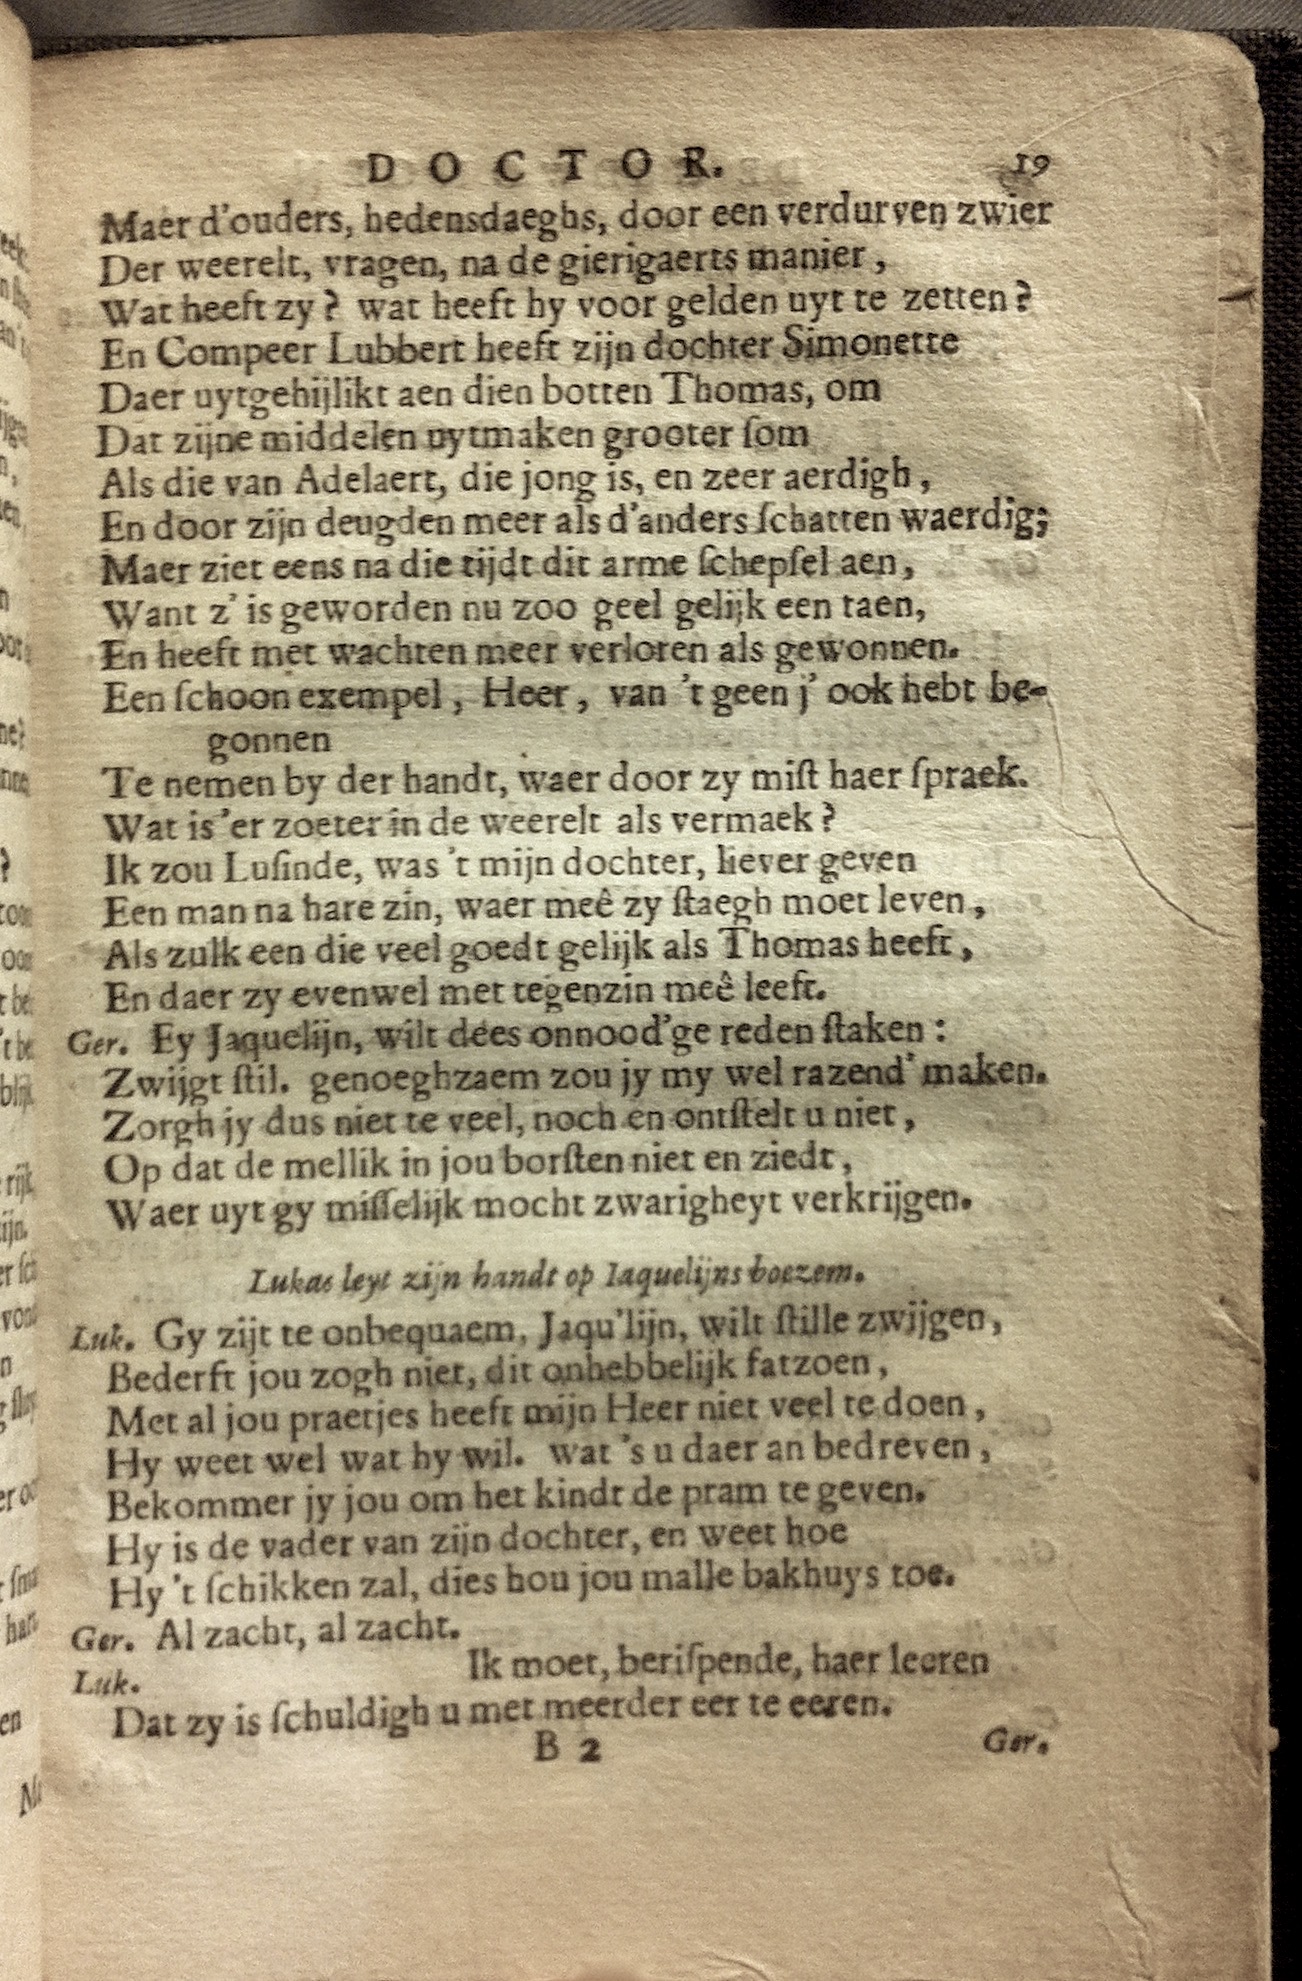 DOCTOR. 19
Maer d'ouders, hedensdaeghs, door een verdurven zwier
Der weerelt, vragen, na de gierigaerts manier,
Wat heeft zy? wat heeft hy voor gelden uyt te zetten?
En Compeer Lubbert heeft zijn dochter Simonette
Daer uytgehijlikt aen dien botten Thomas, om
Dat zijne middelen uytmaken grooter ſom
Als die van Adelaert, die jong is, en zeer aerdigh,
En door zijn deugden meer als d'anders ſchatten waerdig;
Maer ziet eens na die tijdt dit arme ſchepſel aen,
Want z' is geworden nu zoo geel gelijk een taen,
En heeft met wachten meer verloren als gewonnen.
Een ſchoon exempel, Heer, van 't geen j' ook hebt be-
gonnen
Te nemen by der handt, waer door zy miſt haer ſpraek.
Wat is 'er zoeter in de weerelt als vermaek?
Ik zou Luſinde, was 't mijn dochter, liever geven
Een man na hare zin, waer meê zy ſtaegh moet leven,
Als zulk een die veel goedt gelijk als Thomas heeft,
En daer zy evenwel met tegenzin meê leeft.
Ger. Ey Jaquelijn, wilt dees onnood'ge reden ſtaken:
Zwijgt ſtil. genoeghzaem zou jy my wel razend' maken.
Zorgh jy dus niet te veel, noch en ontſtelt u niet,
Op dat de mellik in jou borſten niet en ziedt,
Waer uyt gy miſſelijk mocht zwarigheyt verkrijgen.
Lukas leyt zijn handt op Iaquelijns boezem.
Luk. Gy zijt te onbequaem, Jaqu'lijn, wilt ſtille zwijgen,
Bederft jou zogh niet, dit onhebbelijk fatzoen,
Met al jou praetjes heeft mijn Heer niet veel te doen,
Hy weet wel wat hy wil. wat 's u daer an bedreven,
Bekommer jy jou om het kindt de pram te geven.
Hy is de vader van zijn dochter, en weet hoe
Hy 't ſchikken zal, dies hou jou malle bakhuys toe.
Ger. Al zacht, al zacht.
Luk. Ik moet, beriſpende, haer leeren
Dat zy is ſchuldigh u met meerder eer te eeren.
B 2 Ger.